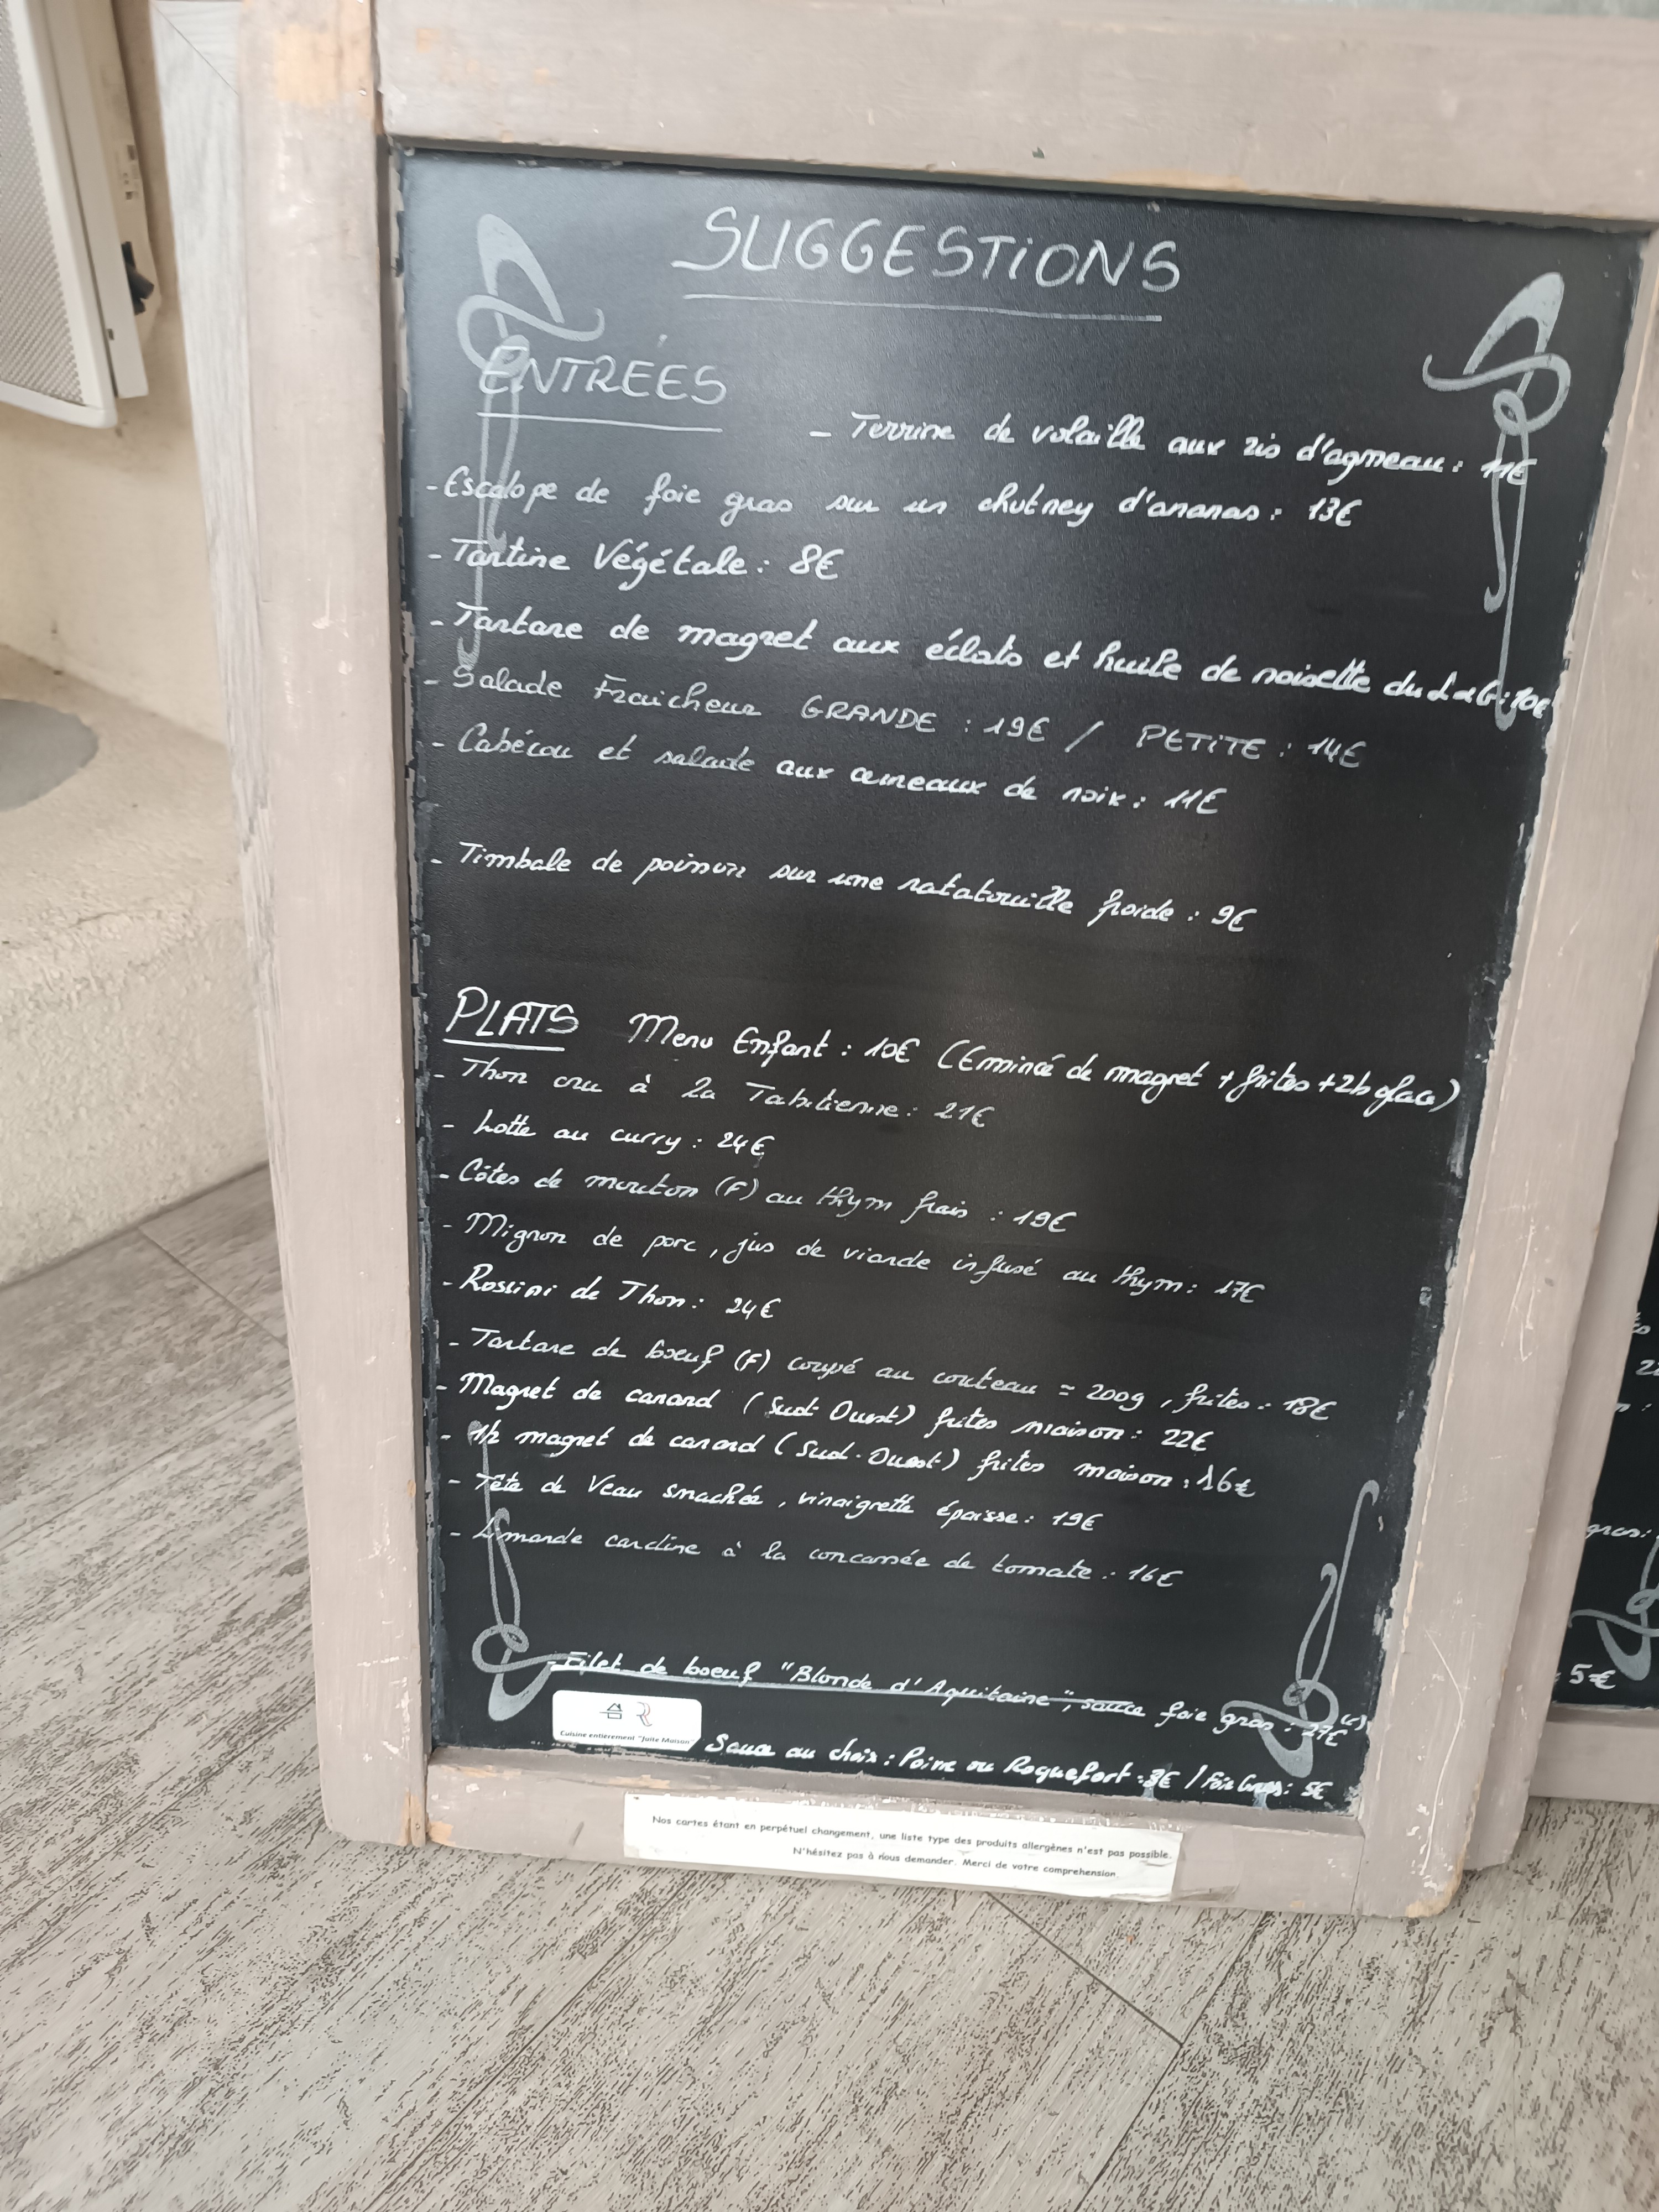 SUGGESTIONS
ENTRÉES
- Terrine de volaille aux ris d'agneau : 11€
- Escalope de foie gras sur un chutney d'ananas : 13€
- Tartine Végétale : 8€
- Tartare de magret aux éclats et huile de noisette du L&G : 10€
- Salade Fraicheur GRANDE : 19€ / PETITE : 14€
- Cabécou et salade aux cerneaux de noix : 11€
- Timbale de poisson sur une ratatouille froide : 9€
PLATS Menu Enfant : 10€ (Emincé de magret + frites + 2b glace)
- Thon cru à la Tahitienne : 21€
- Lotte au curry : 24€
- Côtes de mouton (F) au thym frais : 19€
- Mignon de porc, jus de viande infusé au thym : 17€
- Rossini de Thon : 24€
- Tartare de boeuf (F) coupé au couteau = 200g, frites : 18€
- Magret de canard (Sud-Ouest) frites maison : 22€
- 1/2 magret de canard (Sud-Ouest) frites maison : 16€
- Tête de Veau snackée, vinaigrette épaisse : 19€
- Limande cardine à la concassée de tomate : 16€
- Filet de boeuf "Blonde d'Aquitaine", sauce foie gras : 27€
Cuisine entièrement "faite Maison"
Sauce au choix : Poivre ou Roquefort : 3€ / Foie Gras : 5€
Nos cartes étant en perpétuel changement, une liste type des produits allergènes n'est pas possible.
N'hésitez pas à nous demander. Merci de votre comprehension
5€